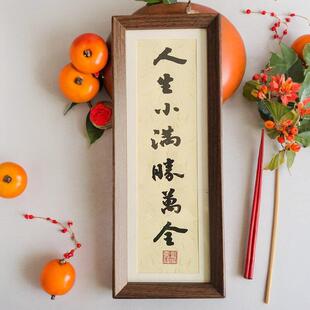 人生小満勝萬全